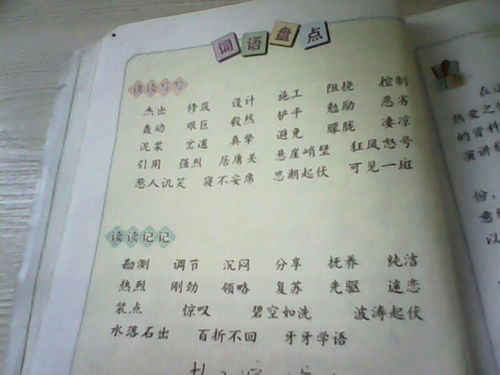 词语盘点
读读写写
杰出 修筑 设计 施工 阻挠 控制
轰动 艰巨 毅然 铲平 勉励 恶劣
泥浆 岔道 真挚 避免 朦胧 凄凉
引用 强烈 居庸关 悬崖峭壁 狂风怒号
惹人讥笑 寝不安席 思潮起伏 可见一斑
读读记记
勘测 调节 沉闷 分享 抚养 纯洁
热烈 刚劲 领略 复苏 先驱 迷恋
装点 惊叹 碧空如洗 波涛起伏
水落石出 百折不回 牙牙学语
在这
热爱之
的资料
演讲稿
份，
意
以